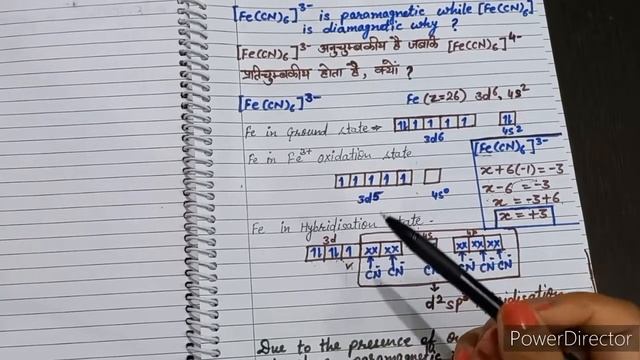 [Fe(CN)₆]³⁻ is paramagnetic while [Fe(CN)₆]
is diamagnetic why ?
[Fe(CN)₆]³⁻ अनुचुम्बकीय है जबकि [Fe(CN)₆]⁴⁻
प्रतिचुम्बकीय होता है, क्यों ?
[Fe(CN)₆]³⁻
Fe (Z=26) 3d⁶, 4s²
Fe in Ground state → 1L 1 1 1 1 1L
3d6 4s²
Fe in Fe³⁺ oxidation state
1 1 1 1 1
3d5 4s⁰
[Fe(CN)₆]³⁻
x+6(-1)=-3
x-6 = -3
x = -3+6
x = +3
Fe in Hybridisation state -
3d 4s 4p
1L 1L 1 xx xx xx xx xx
CN⁻ CN⁻ CN⁻ CN⁻ CN⁻
d²sp³
Due to the presence of
PowerDirector